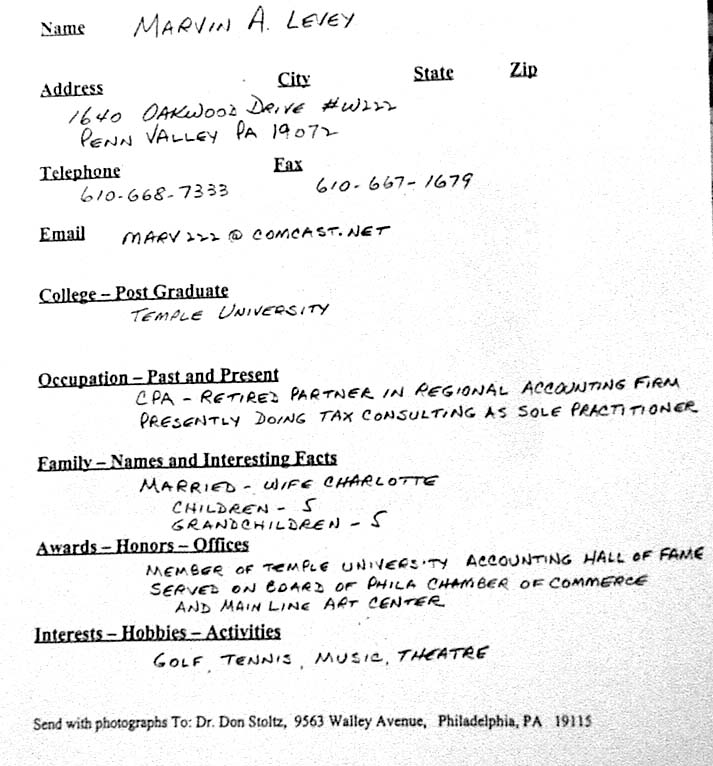 Name MARVIN A. LEVEY
Address City State Zip
1640 OAKWOOD DRIVE #W222
PENN VALLEY PA 19072
Telephone Fax
610-668-7333 610-667-1679
Email MARV222@COMCAST.NET
College – Post Graduate
TEMPLE UNIVERSITY
Occupation – Past and Present
CPA - RETIRED PARTNER IN REGIONAL ACCOUNTING FIRM
PRESENTLY DOING TAX CONSULTING AS SOLE PRACTITIONER
Family – Names and Interesting Facts
MARRIED - WIFE CHARLOTTE
CHILDREN - 5
GRANDCHILDREN - 5
Awards – Honors – Offices
MEMBER OF TEMPLE UNIVERSITY ACCOUNTING HALL OF FAME
SERVED ON BOARD OF PHILA CHAMBER OF COMMERCE
AND MAIN LINE ART CENTER
Interests – Hobbies – Activities
GOLF, TENNIS, MUSIC, THEATRE
Send with photographs To: Dr. Don Stoltz, 9563 Walley Avenue, Philadelphia, PA 19115